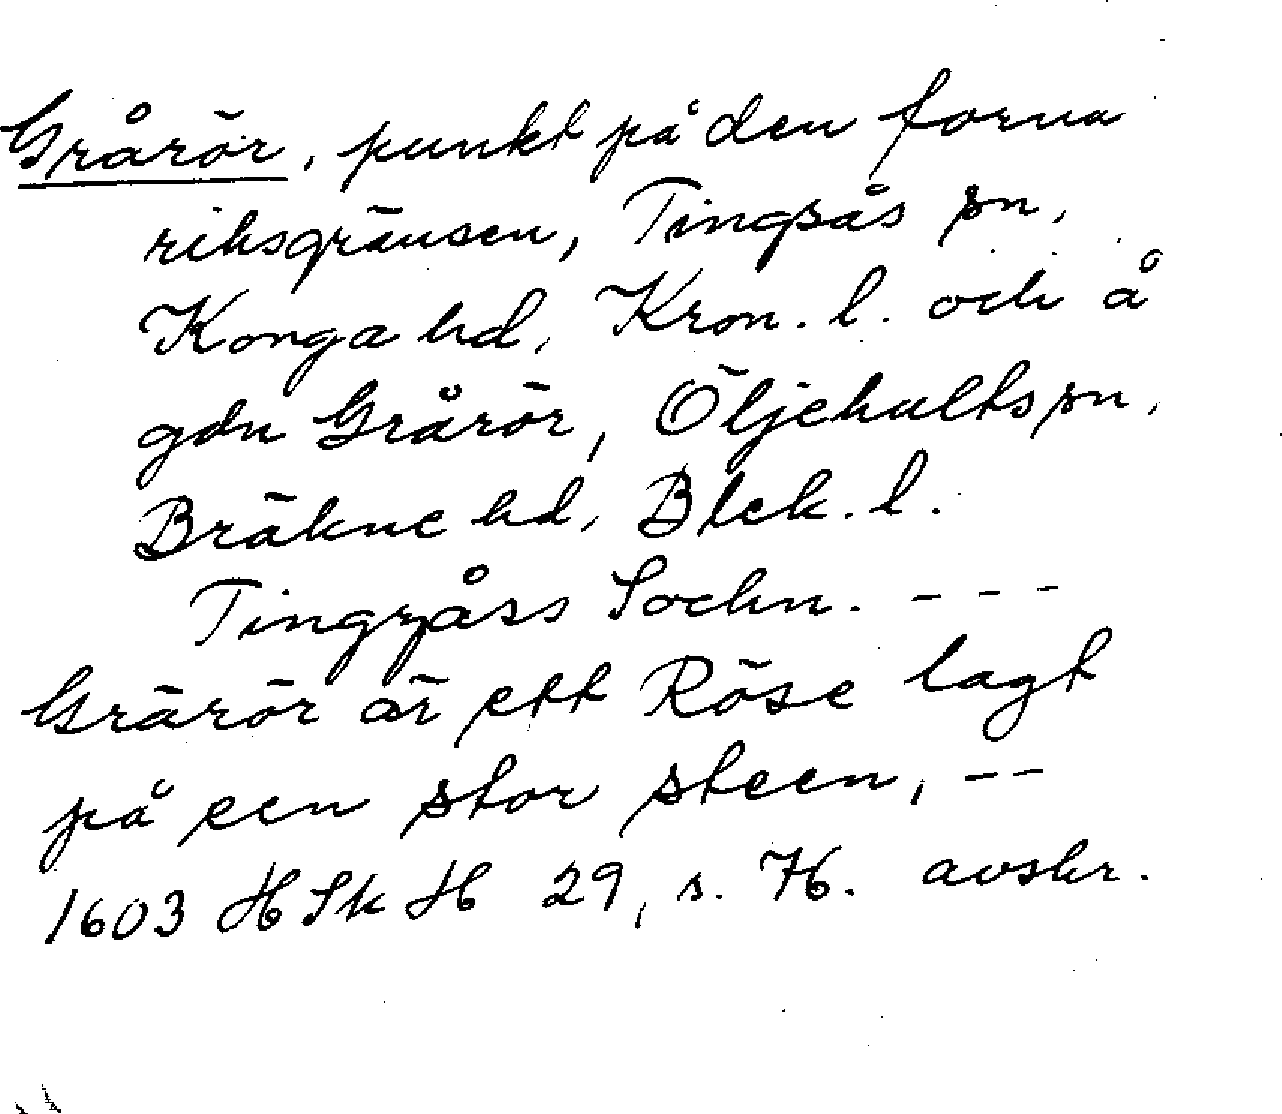 Grårör, punkt på den forna
riksgränsen, Tingsås sn,
Konga hd, Kron. l. och å
gdn Grårör, Öljehults sn,
Bräkne hd, Blek. l.
Tingzåss Sochn. - - -
Grärör är ett Röse lagt
på een stor steen, - -
1603 HSkH 29, s. 76. avskr.